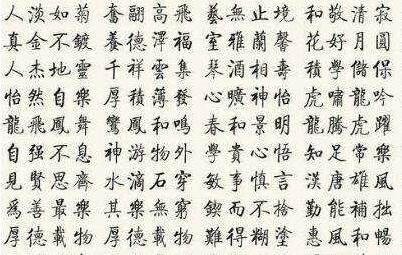 人淡如菊 奮翮高飛 藝無止境 和敬清寂
真金不鍍 養德澤福 室雅蘭馨 花好月圓
人杰地靈 千祥雲集 琴酒相壽 積學儲保
怡然自樂 厚積薄發 心曠神怡 虎嘯龍吟
龍飛鳳舞 鸞鳳和鳴 春和景明 龍騰虎躍
自强不息 神游物外 學貴心悟 知足常樂
見賢思齊 水滴石穿 敏事慎言 漢唐雄風
爲善最樂 其樂無窮 鍥而不捨 勤能補拙
厚德載物 厚德載物 難得糊塗 惠風和暢